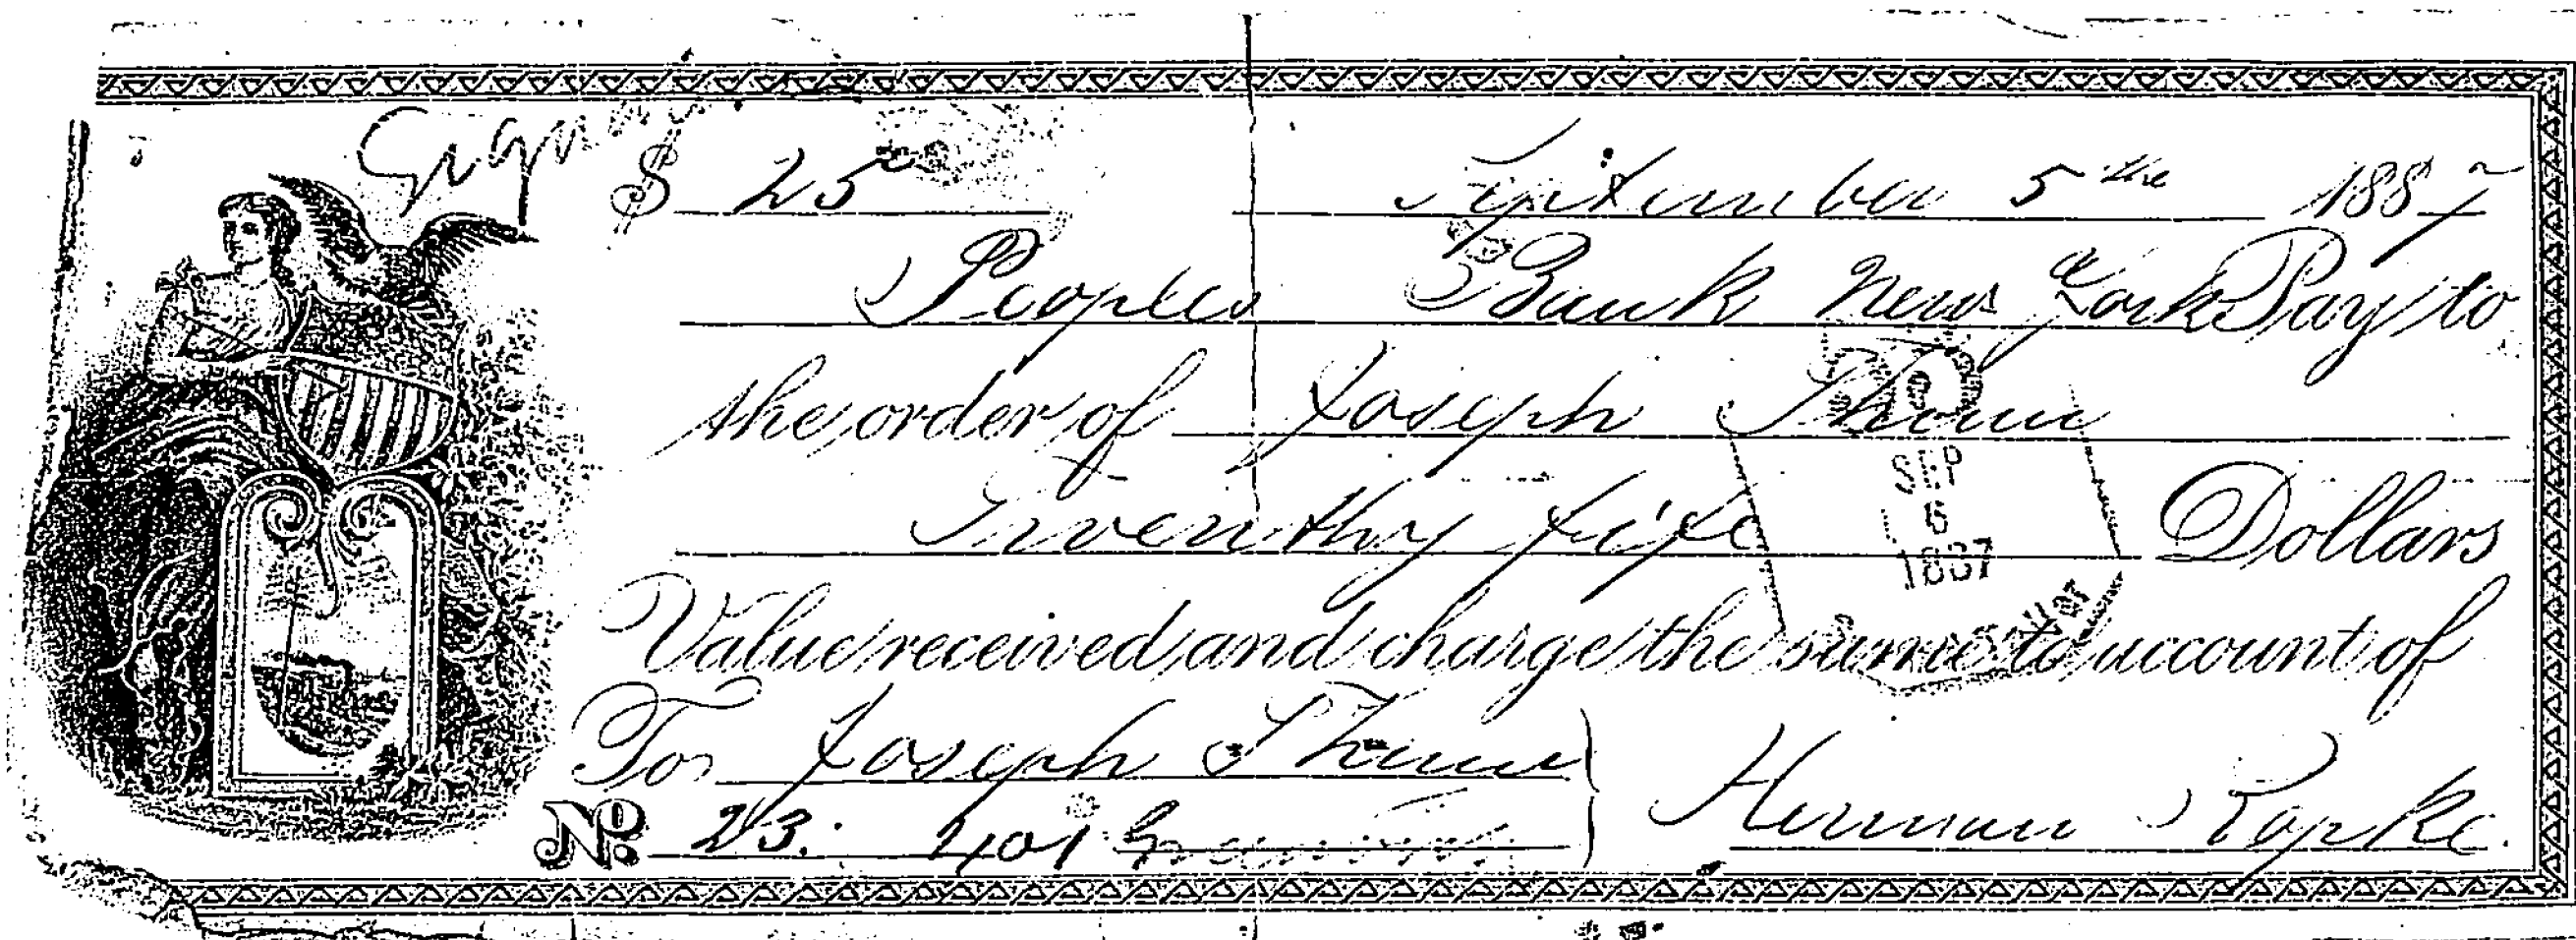 $ 25 September 5 the 1887
Peoples Bank New York Pay to
the order of Joseph Thum
Twenthy fife Dollars
SEP
6
1887
Value received and charge the same to account of
To Joseph Thum
No. 23. 401 Herman Kopke